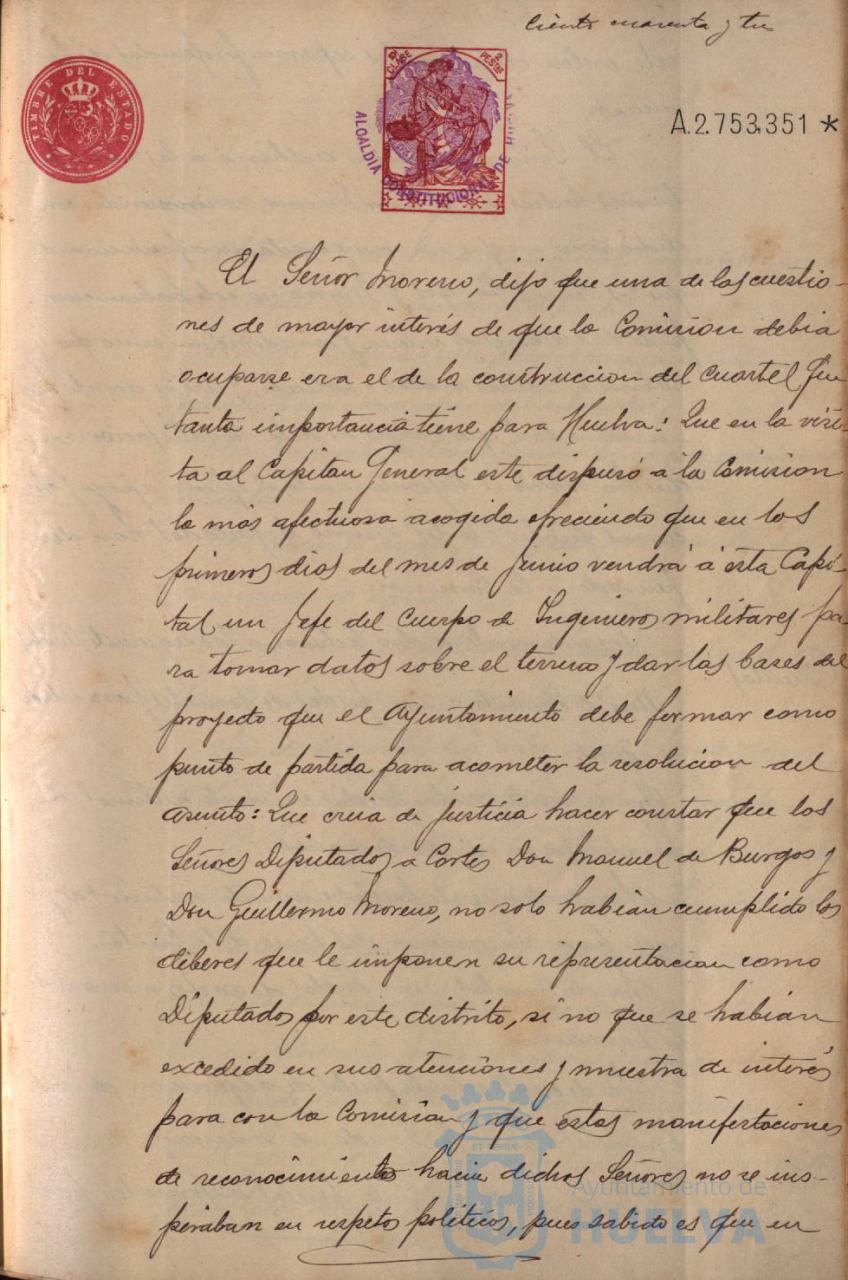 Ciento cuarenta y tres
TIMBRE DEL ESTADO
CLASE
2 PESETAS
ALCALDIA CONSTITUCIONAL DE HUELVA
A.2.753,351 *
El Señor Moreno, dijo que una de las cuestio-
nes de mayor interés de que la Comision debia
ocuparse era el de la construccion del cuartel que
tanta importancia tiene para Huelva: Que en la visi-
ta al Capitan General este dispusó a la Comision
la más afectuosa acogida ofreciendo que en los
primeros dias del mes de Junio vendrá á esta Capi-
tal un Jefe del Cuerpo de Ingenieros militares pa-
ra tomar datos sobre el terreno y dar las bases del
proyecto que el Ayuntamiento debe formar como
punto de partida para acometer la resolucion del
asunto: Que creia de justicia hacer constar que los
Señores Diputados a Cortes Don Manuel de Burgos y
Don Guillermo Moreno, no solo habian cumplido los
deberes que le imponen su representacion como
Diputados por este distrito, si no que se habian
excedido en sus atenciones y muestra de interés
para con la Comision y que estas manifestaciones
de reconocimiento hacia dichos Señores no se ins-
piraban en respetos politicos, pues sabido es que en
Ayuntamiento de
HUELVA